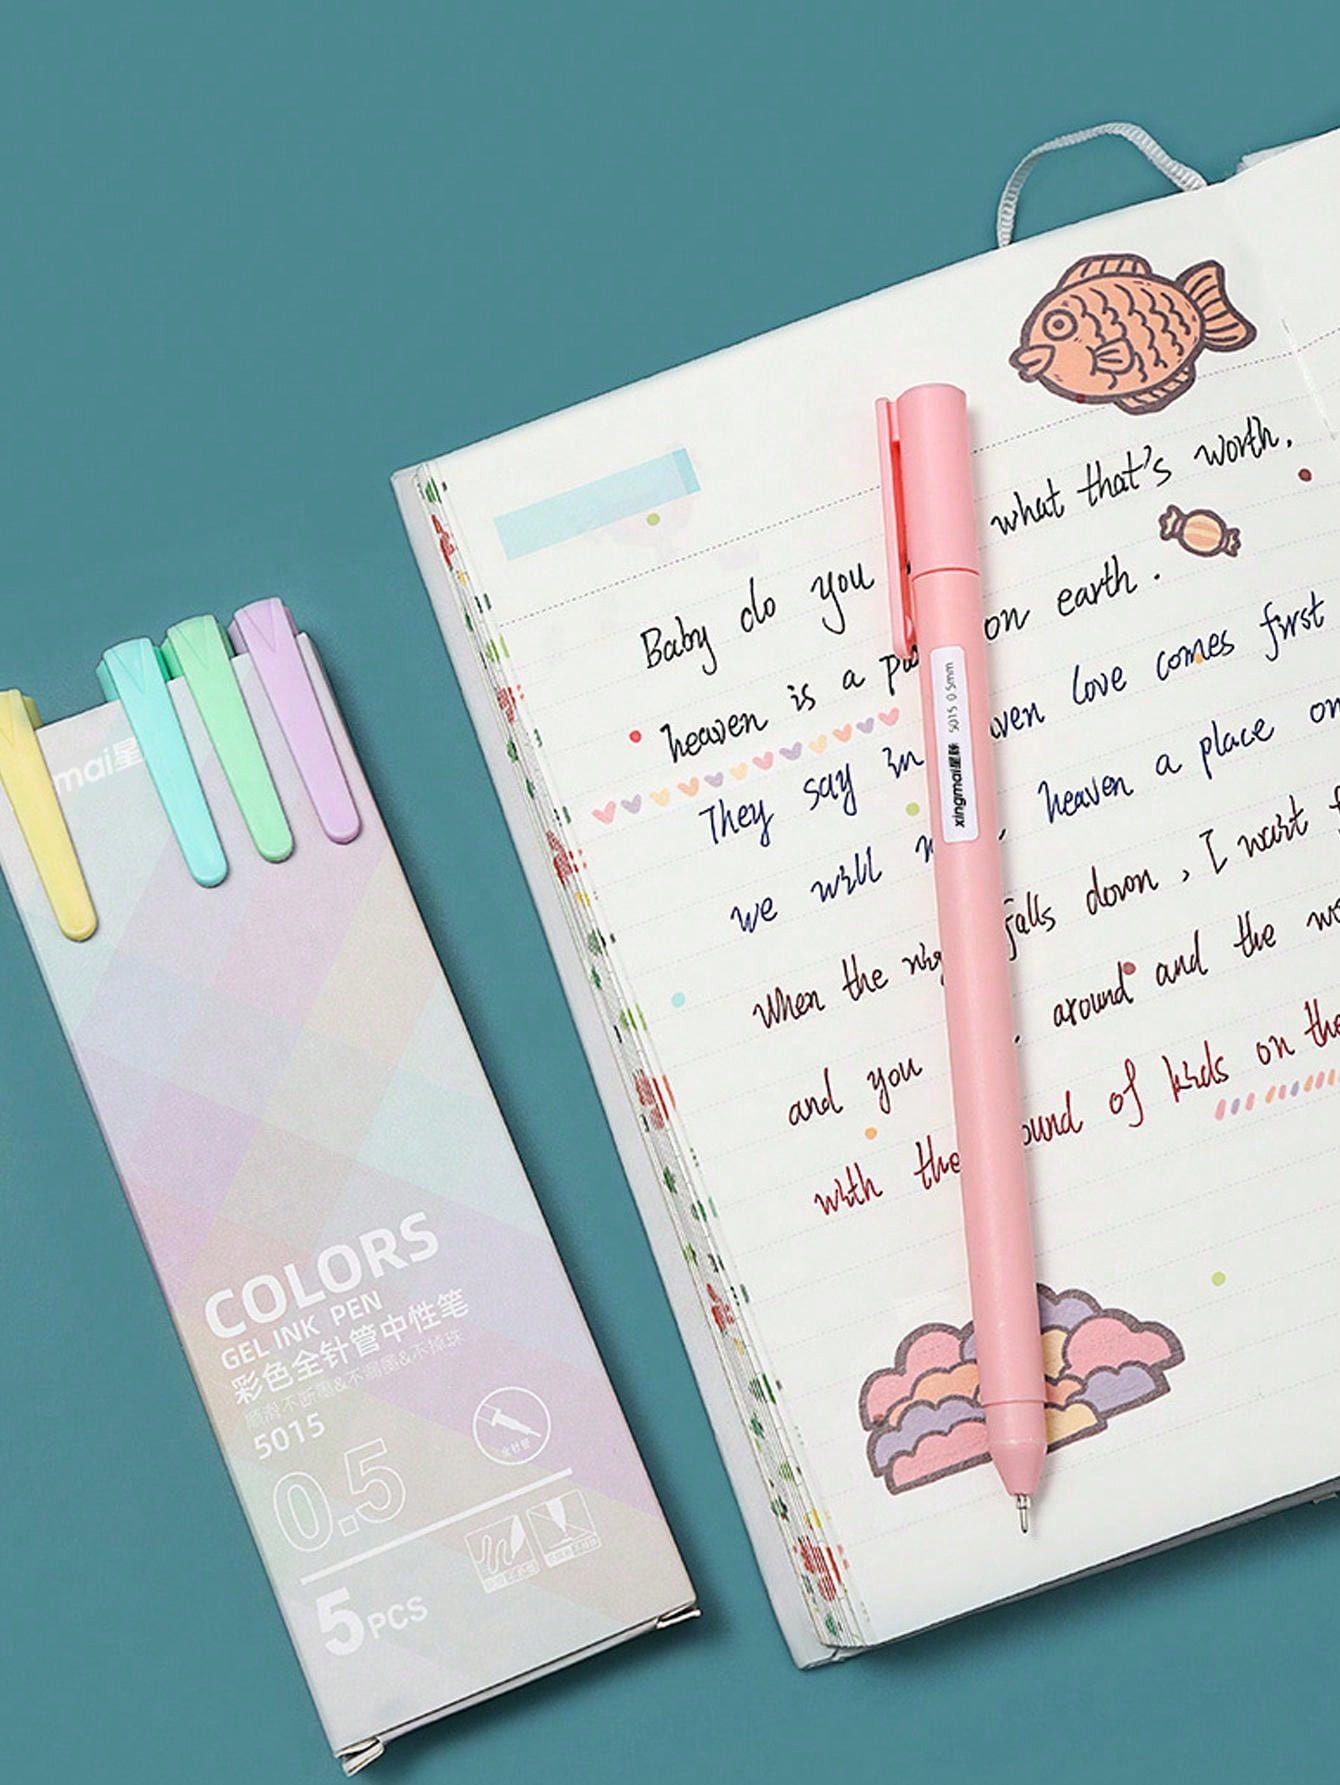 what that's worth,
Baby do you
on earth.
heaven is a
love comes first
They say in
heaven a place on
we will
falls down, I want
When the
around and the
and you
of kids on the
with the
xingmai星脉 5015 0.5mm
mai星
COLORS
GEL INK PEN
彩色全针管中性笔
顺滑不断墨&不漏墨&不掉珠
5015
0.5
全针管
5PCS